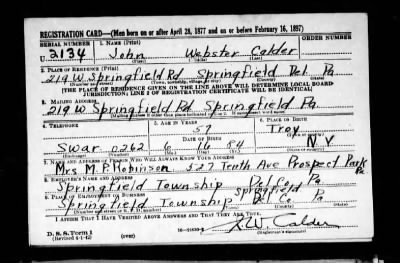 REGISTRATION CARD—(Men born on or after April 28, 1877 and on or before February 16, 1897)
SERIAL NUMBER 1. NAME (Print) ORDER NUMBER
U 2134 John Webster Calder
(First) (Middle) (Last)
2. PLACE OF RESIDENCE (Print)
219 W Springfield Rd Springfield Del Pa
(Number and street) (Town, township, village, or city) (County) (State)
[THE PLACE OF RESIDENCE GIVEN ON THE LINE ABOVE WILL DETERMINE LOCAL BOARD
JURISDICTION; LINE 2 OF REGISTRATION CERTIFICATE WILL BE IDENTICAL]
3. MAILING ADDRESS
219 W Springfield Rd Springfield Pa
[Mailing address if other than place indicated on line 2. If same insert word same]
4. TELEPHONE 5. AGE IN YEARS 6. PLACE OF BIRTH
57 Troy
DATE OF BIRTH
Swar 0262 6 16 84 N Y
(Exchange) (Number) (Mo.) (Day) (Yr.) (State or country)
7. NAME AND ADDRESS OF PERSON WHO WILL ALWAYS KNOW YOUR ADDRESS
Mrs M. P. Robinson 527 Tenth Ave Prospect Park Pa
8. EMPLOYER'S NAME AND ADDRESS
Springfield Township Del Co Pa
9. PLACE OF EMPLOYMENT OR BUSINESS
Springfield Township Springfield Del. Co. Pa
(Number and street or R. F. D. number) (Town) (County) (State)
I AFFIRM THAT I HAVE VERIFIED ABOVE ANSWERS AND THAT THEY ARE TRUE.
D. S. S. Form 1
(Revised 4-1-42) (over) 16-21630-2 J.W. Calder
(Registrant's signature)